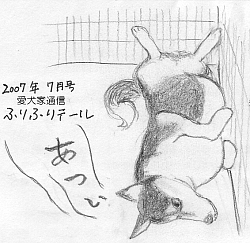 2007年 7月号
愛犬家通信
ふりふりテール
あつい